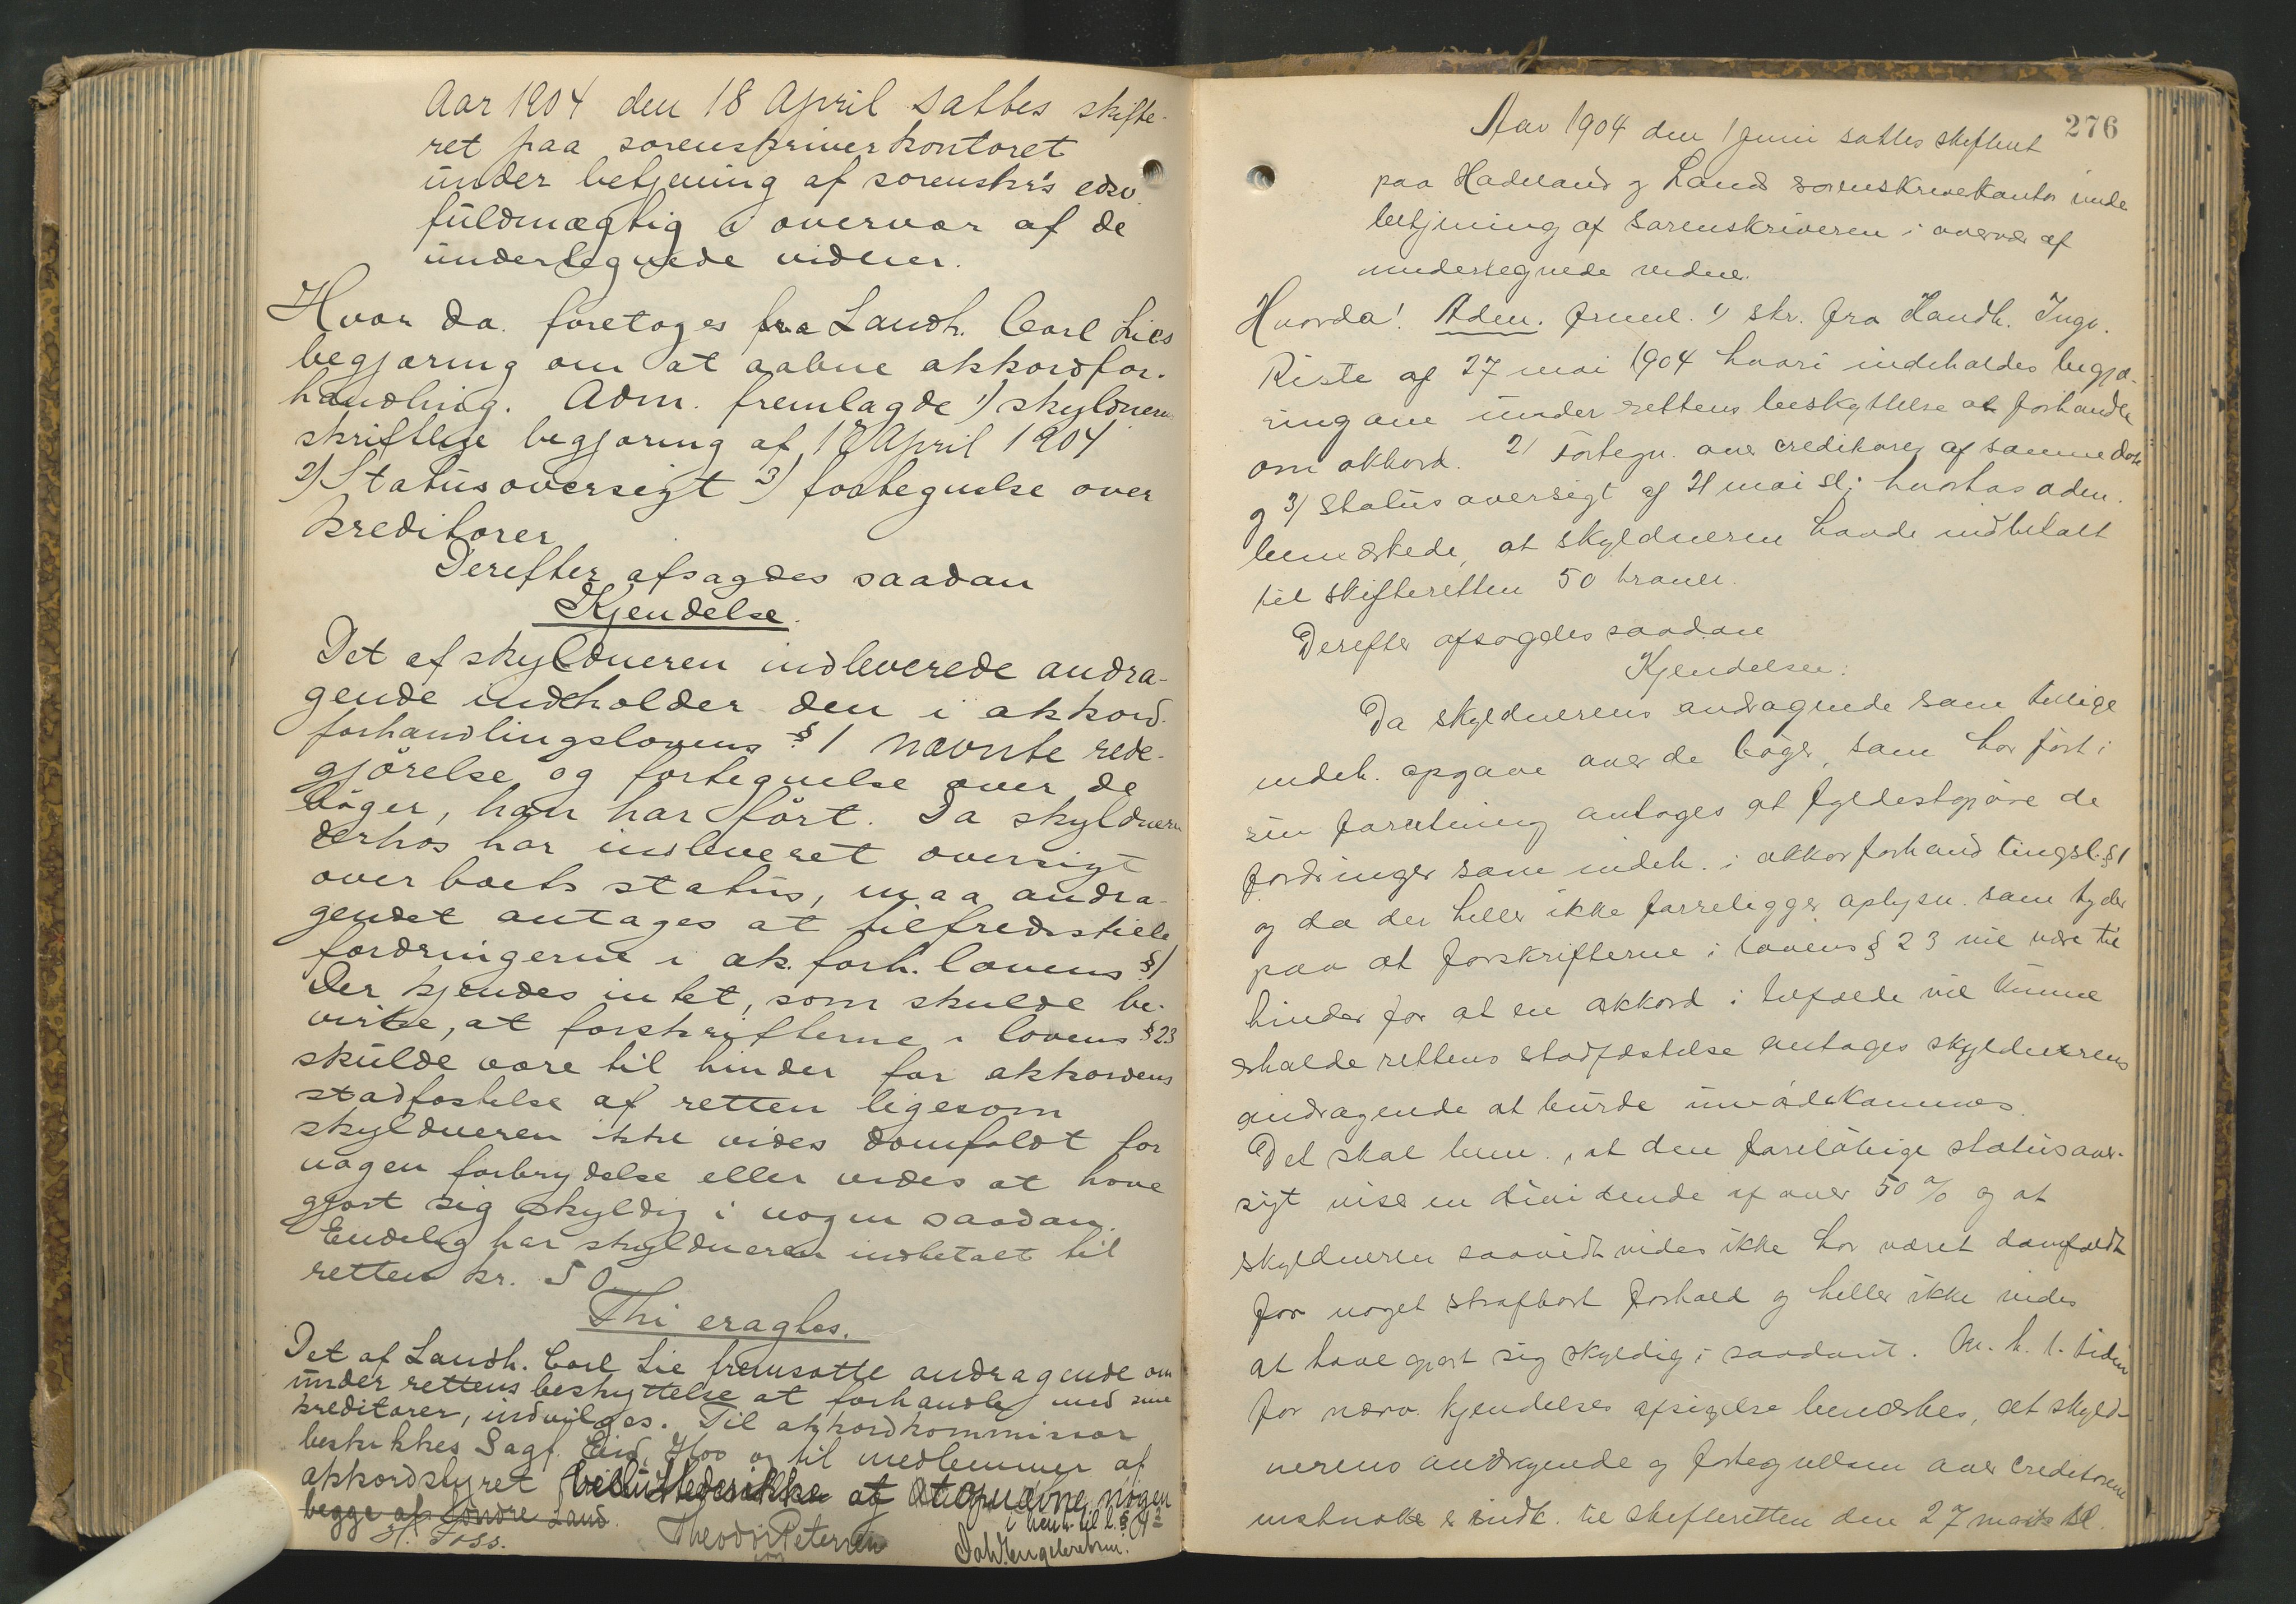 Aar 1904 den 18 April sattes skifte-
ret paa sorenskriverkontoret
under betjening af sorenskr's edsv.
fuldmægtig i overvær af de
undertegnede vidner.
Hvor da foretoges fra Landh. Carl Lies
begjæring om at aabne akkordfor-
handling. Adm. fremlagde 1) skyldneren
skriftlige begjæring af 18 April 1904
2) Statusoversigt 3) fortegnelse over
kreditorer
Derefter afsagdes saadan
Kjendelse.
Det af skyldneren indleverede andra-
gende indeholder den i akkord-
forhandlingslovens § 1 nævnte rede-
gjörelse og fortegnelse over de
böger, han har fört. Da skyldneren
derhos har indleveret oversigt
over boets status, maa andra-
gendet antages at tilfredsstille
fordringerne i ak. forh. lovens § 1
Der kjendes intet, som skulde be-
virke, at forskrifterne i lovens § 23
skulde være til hinder for akkordens
stadfæstelse af retten ligesom
skyldneren ikke vides domfældt for
nogen forbrydelse eller vides at have
gjort sig skyldig i nogen saadan.
Endelig har skyldneren indbetalt til
retten kr. 50
Thi eragtes.
Det af Landh. Carl Lie fremsatte andragende om
under rettens beskyttelse at forhandle med sine
kreditorer, indvilges. Til akkordkommissær
beskikkes Sagf. Hoo og til medlemmer af
akkordstyret at opnævne nogen
begge af Söndre Land. i henh. til l. § 4
H. Foss. Theodor Petersen
276
Aar 1904 den 1 Juni sattes skifteret
paa Hadeland og Lands sorenskriverkontor under
betjening af Sorenskriveren i overvær af
undertegnede vidner.
Hvorda! Adm. freml. 1) skr. fra Handh. Ingv.
Riste af 27 mai 1904 hvori indeholdes begjæ-
ring om under rettens beskyttelse at forhandle
om akkord. 2) Fortegn. over creditorer af samme dato
og 3) Statusoversigt af 21 mai sl; hvorhos adm.
bemærkede, at skyldneren havde indbetalt
til skifteretten 50 kroner.
Derefter afsagdes saadan
Kjendelse:
Da skyldnerens andragende som tillige
indeh. opgave over de böger, som har fört i
sin forretning antages at fyldestgjöre de
fordringer som indeh. i akkorforhandlingsl. § 1
og da der heller ikke foreligger oplysn. som tyder
paa at forskrifterne i lovens § 23 vil være til
hinder for at en akkord i tilfælde vil kunne
erholde rettens stadfæstelse antages skyldnerens
andragende at burde imödekommes.
Det skal bem., at den foreløbige statusover-
sigt viser en dividende af over 50 % og at
skyldneren saavidt vides ikke har været domfældt
for noget strafbart forhold og heller ikke vides
at have gjort sig skyldig i saadant. M. h. t. tiden
for nærv. kjendelses afsigelse bemærkes, at skyld-
nerens andragende og fortegnelsen over creditorerne
indk. til skifteretten den 27 mai sl.